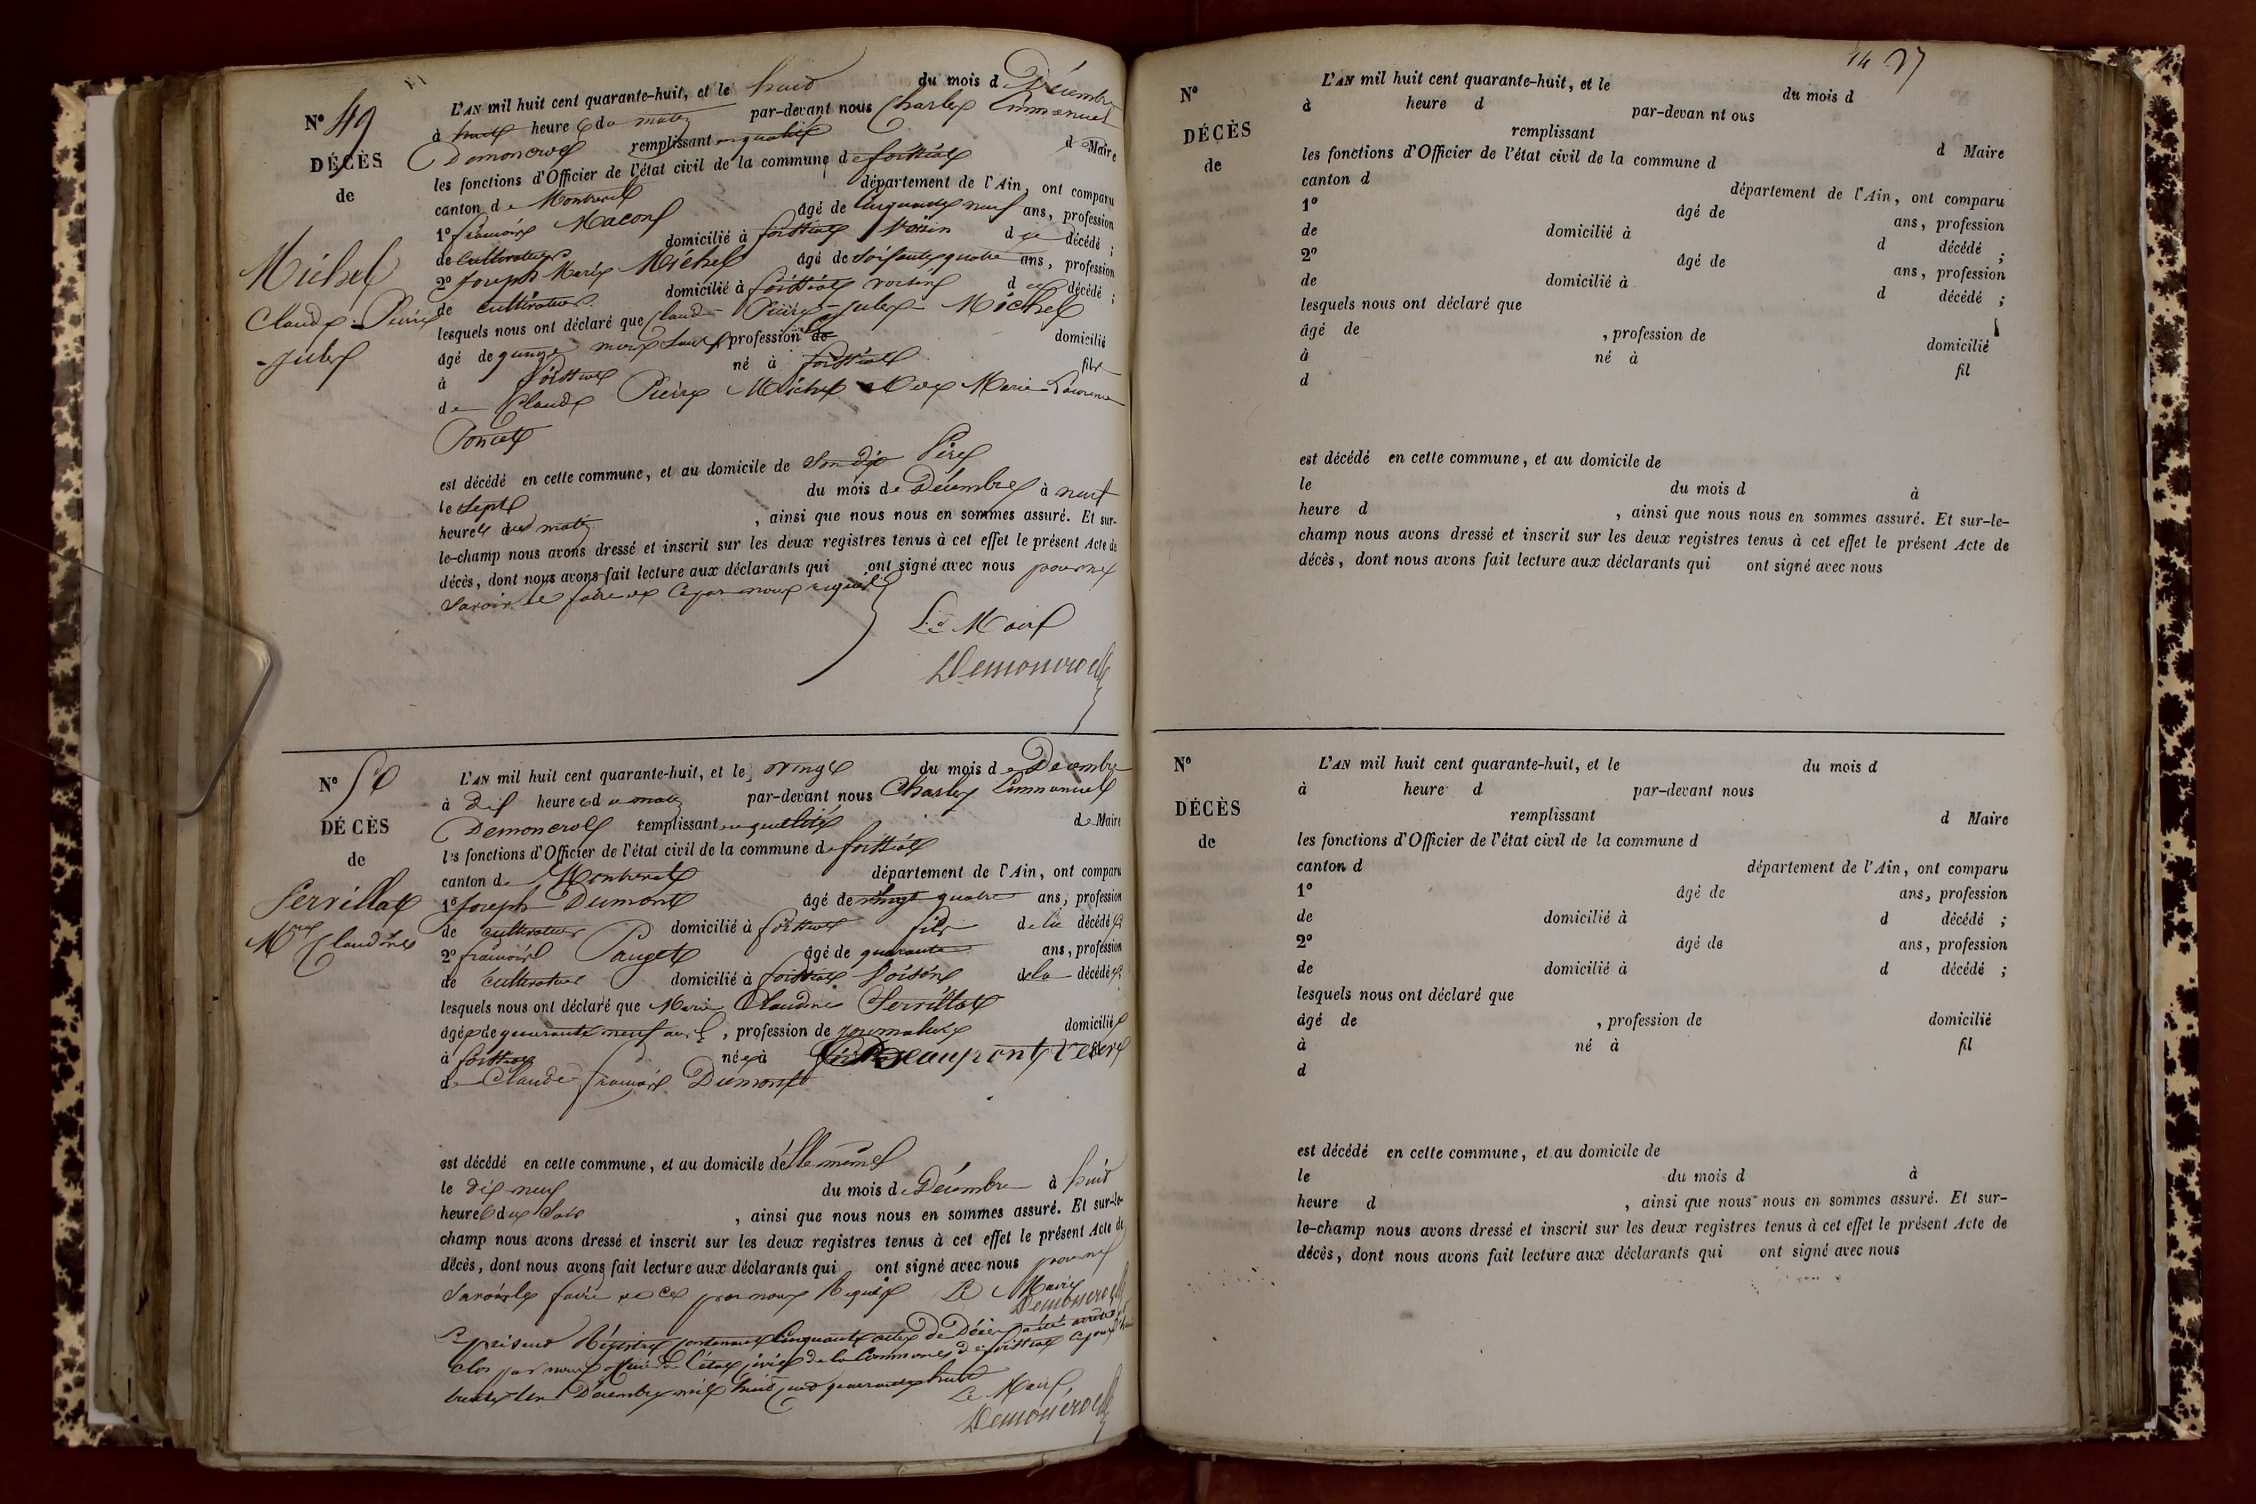 N° 49
DÉCÈS
de
Michel
Claude Pierre
Jules
L'AN mil huit cent quarante-huit, et le huit du mois de Décembre
à huit heures du matin par-devant nous Charles Emmanuel
Demoncrof remplissant en qualité de Maire
les fonctions d'Officier de l'état civil de la commune de foissiat
canton de Montrevel département de l'Ain, ont comparu
1° françois Macon âgé de cinquante neuf ans, profession
de cultivateur domicilié à foissiat voisin du décédé ;
2° Joseph Marie Michel âgé de soixante quatre ans, profession
de cultivateur domicilié à foissiat voisin du décédé ;
lesquels nous ont déclaré que Claude Pierre Jules Michel
âgé de quinze mois profession de domicilié
à foissiat né à foissiat fils
de Claude Pierre Michel et de Marie Laurence
Poncet
est décédé en cette commune, et au domicile de son dit Père
le sept du mois de Décembre à neuf
heures du matin, ainsi que nous nous en sommes assuré. Et sur-
le-champ nous avons dressé et inscrit sur les deux registres tenus à cet effet le présent Acte de
décès, dont nous avons fait lecture aux déclarants qui ont signé avec nous pour ne
savoir le faire de ce par nous requis
Le Maire
Demoncrof
N° 50
DÉCÈS
de
Servillat
Mrie Claudine
L'AN mil huit cent quarante-huit, et le vingt du mois de Décembre
à dix heures du matin par-devant nous Charles Emmanuel
Demoncrof remplissant en qualité de Maire
les fonctions d'Officier de l'état civil de la commune de foissiat
canton de Montrevel département de l'Ain, ont comparu
1° Joseph Dumont âgé de vingt quatre ans, profession
de cultivateur domicilié à foissiat fils de la décédée
2° françois Pauget âgé de quarante ans, profession
de cultivateur domicilié à foissiat voisin de la décédée
lesquels nous ont déclaré que Marie Claudine Servillat
âgée de quarante neuf ans, profession de journalière domiciliée
à foissiat née à Beaupont veuve
de Claude françois Dumont
est décédé en cette commune, et au domicile d'elle même
le dix neuf du mois de Décembre à huit
heures du soir, ainsi que nous nous en sommes assuré. Et sur-le-
champ nous avons dressé et inscrit sur les deux registres tenus à cet effet le présent Acte de
décès, dont nous avons fait lecture aux déclarants qui ont signé avec nous pour ne
savoir le faire de ce par nous requis Le Maire
Demoncrof
Le présent Régistre contenant cinquante actes de Décès a été arrêté et
clos par nous officier de l'état civil de la Commune de foissiat ce jourd'hui
trente un Décembre mil huit cent quarante huit
Le Maire
Demoncrof
14 27
N°
DÉCÈS
de
L'AN mil huit cent quarante-huit, et le du mois d
à heure d par-devan nt ous
remplissant d Maire
les fonctions d'Officier de l'état civil de la commune d
canton d département de l'Ain, ont comparu
1° âgé de ans, profession
de domicilié à d décédé ;
2° âgé de ans, profession
de domicilié à d décédé ;
lesquels nous ont déclaré que
âgé de , profession de domicilié
à né à fil
d
est décédé en cette commune, et au domicile de
le du mois d à
heure d , ainsi que nous nous en sommes assuré. Et sur-le-
champ nous avons dressé et inscrit sur les deux registres tenus à cet effet le présent Acte de
décès, dont nous avons fait lecture aux déclarants qui ont signé avec nous
N°
DÉCÈS
de
L'AN mil huit cent quarante-huit, et le du mois d
à heure d par-devant nous
remplissant d Maire
les fonctions d'Officier de l'état civil de la commune d
canton d département de l'Ain, ont comparu
1° âgé de ans, profession
de domicilié à d décédé ;
2° âgé de ans, profession
de domicilié à d décédé ;
lesquels nous ont déclaré que
âgé de , profession de domicilié
à né à fil
d
est décédé en cette commune, et au domicile de
le du mois d à
heure d , ainsi que nous nous en sommes assuré. Et sur-
le-champ nous avons dressé et inscrit sur les deux registres tenus à cet effet le présent Acte de
décès, dont nous avons fait lecture aux déclarants qui ont signé avec nous